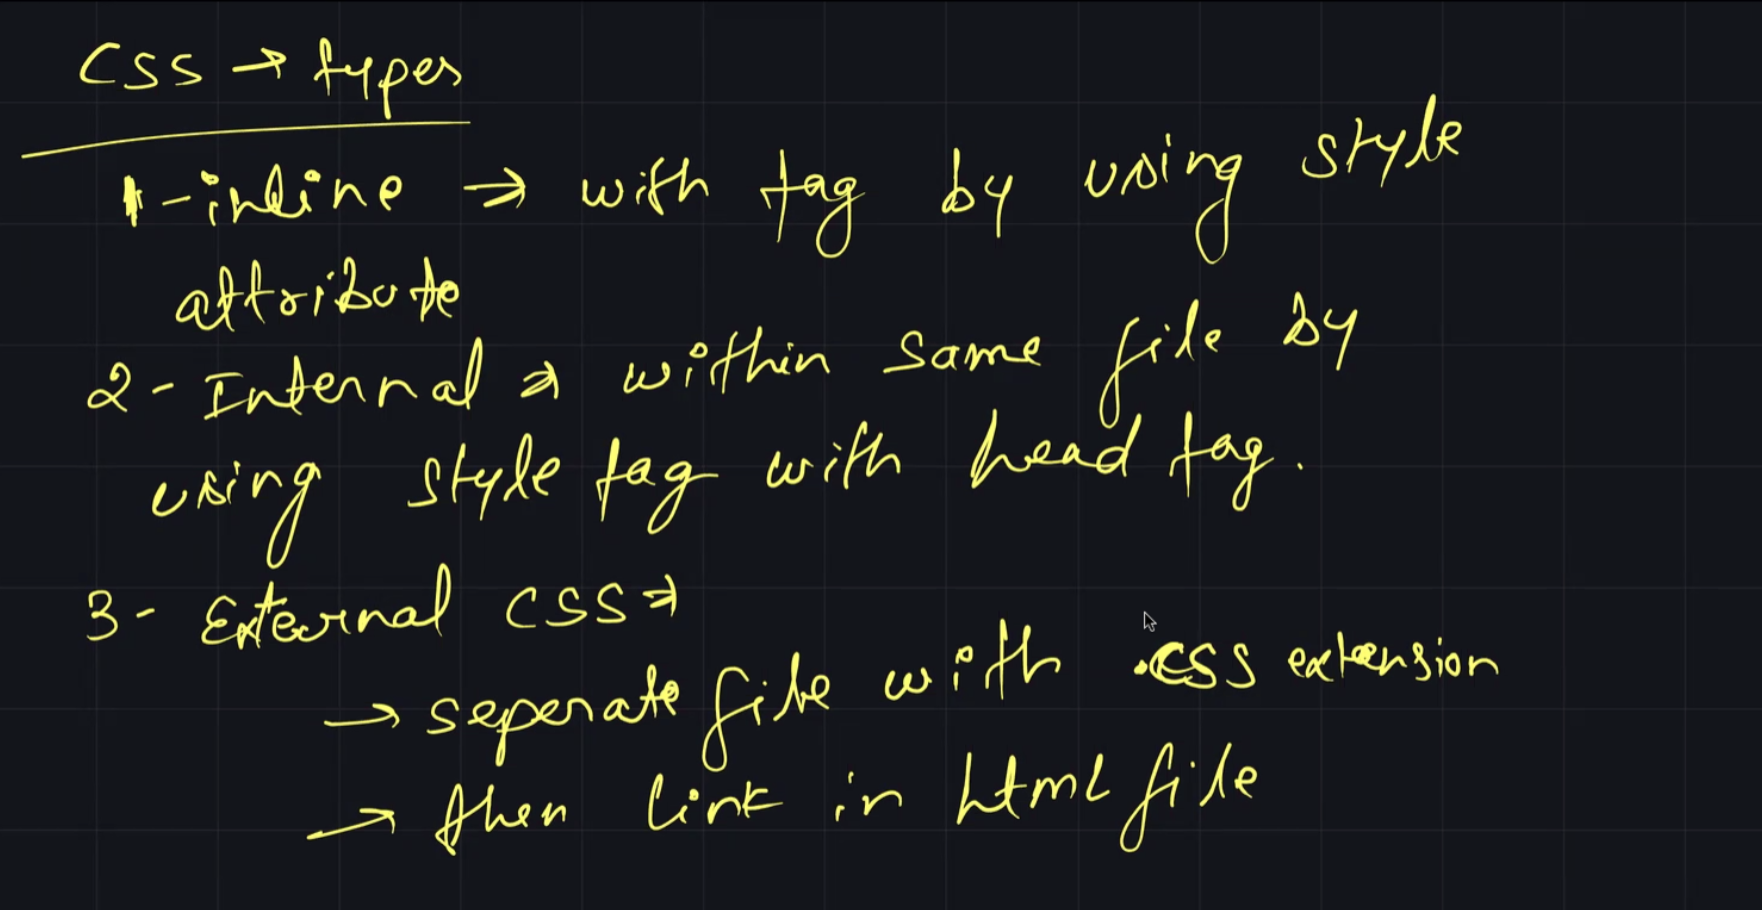 CSS → types
1-inline → with tag by using style
attribute
2- Internal → within same file by
using style tag with head tag.
3- External CSS →
→ seperate file with .css extension
→ then link in html file